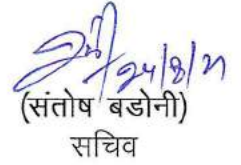 24/8/21
(संतोष बडोनी)
सचिव